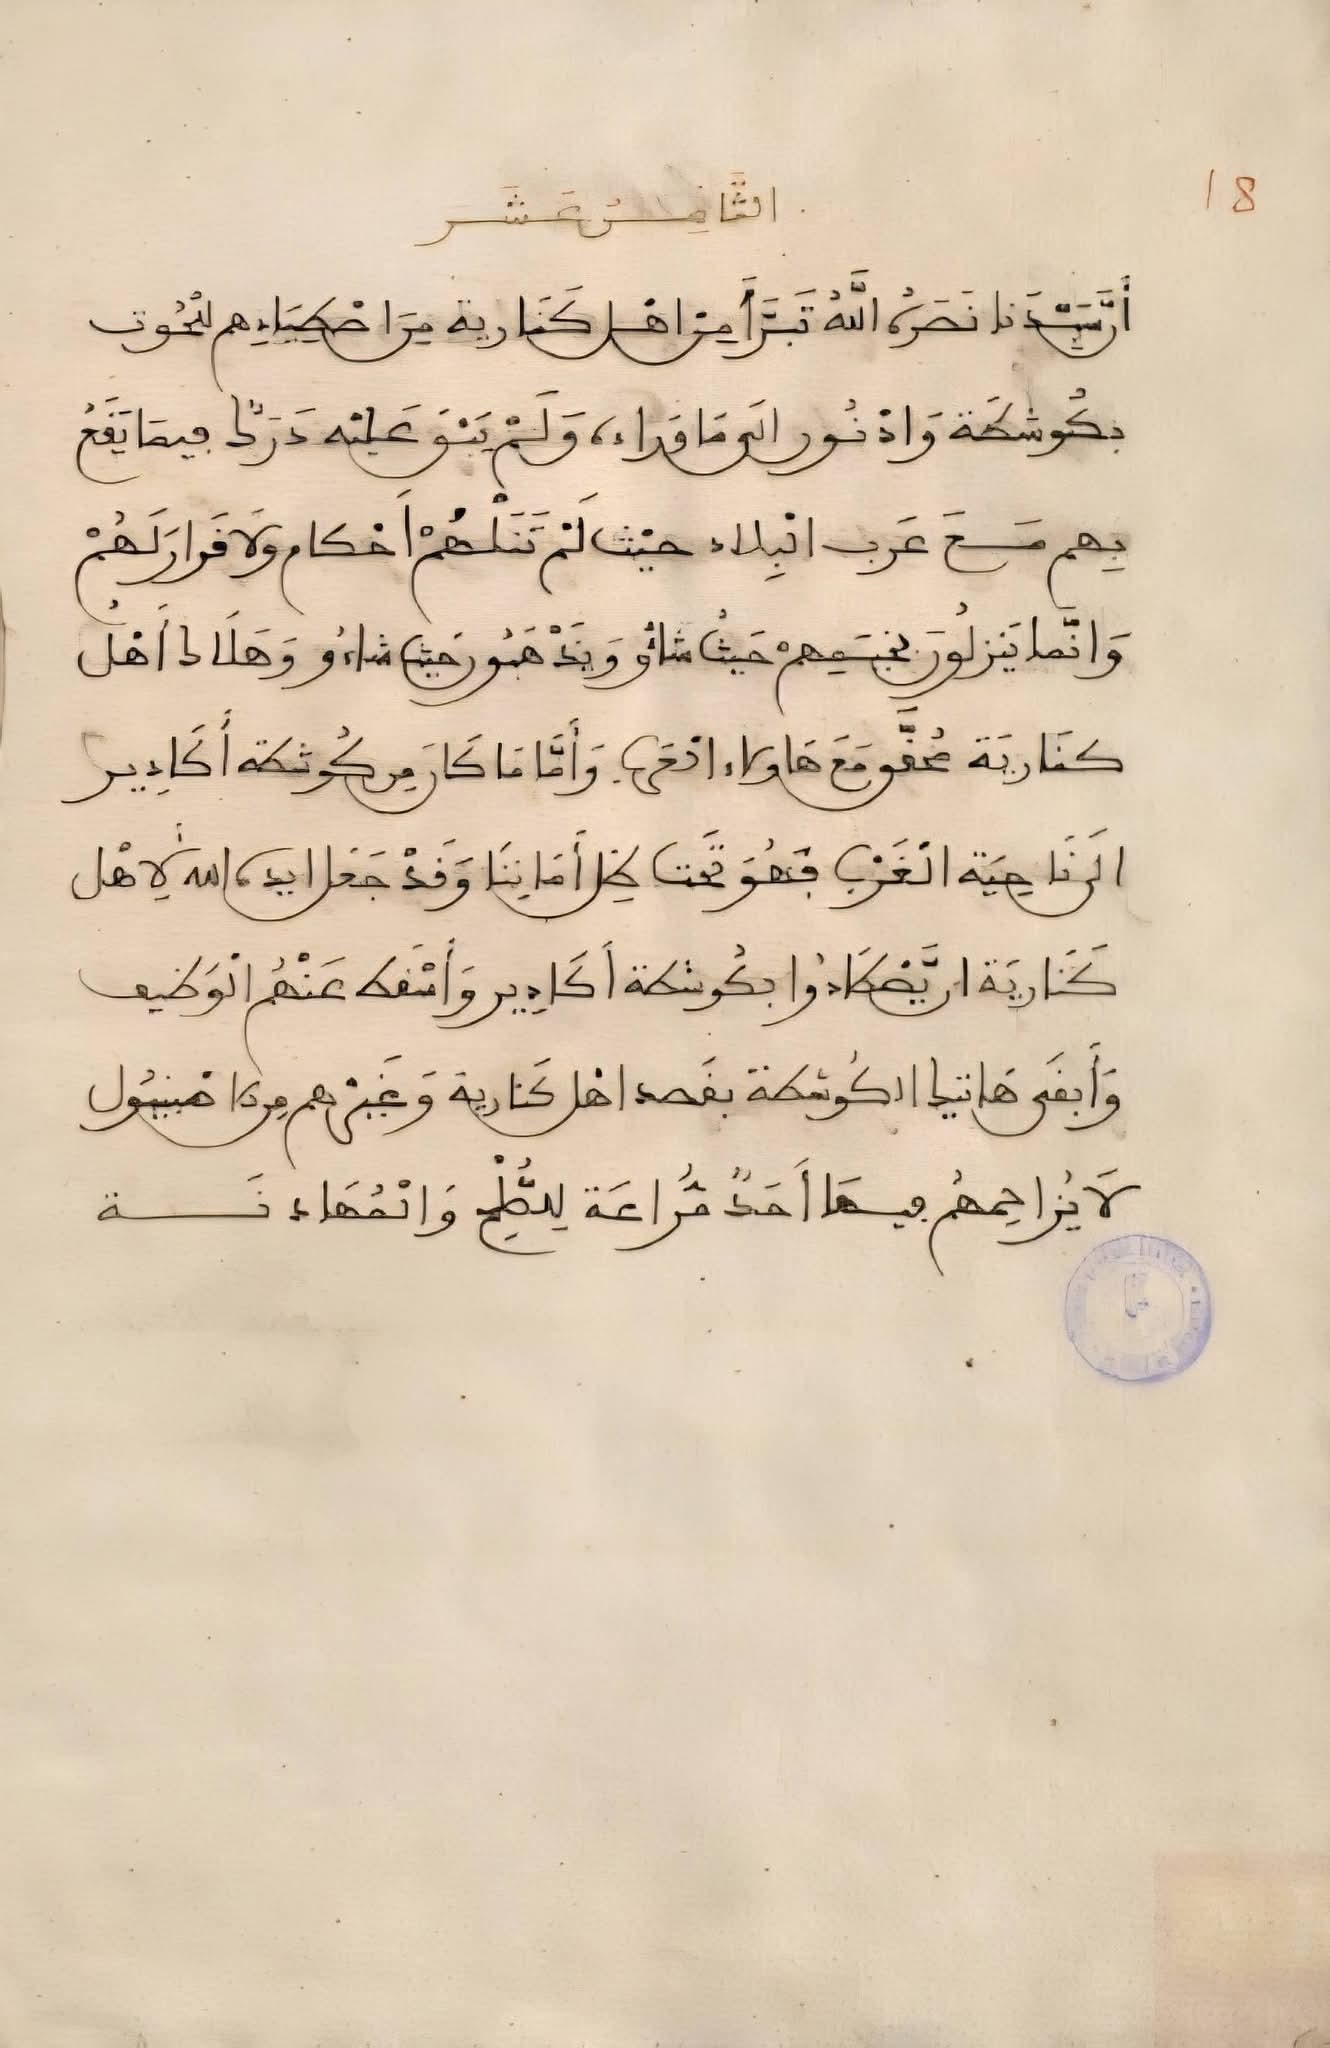 18
الثامن عشر
أن سيدنا نصره الله تبرأ من اهل كنارية من اصطيادهم للحوت
بكوشطة واد نور الى ما وراءه ولم يبق عليه دركا فيما يقع
بهم مع عرب البلاد حيث لم تنلهم أحكام ولا قرار لهم
وانما ينزلون بخيمهم حيث شاؤو ويذهبون حيث شاءو وهلاك أهل
كنارية محقق مع هاولاء العرب وأما ما كان من كوشطة أكادير
الى ناحية الغرب فهو تحت ظل أماننا وقد جعل ايده الله لاهل
كنارية ان يصطادوا بكوشطة أكادير وأسقط عنهم الوظيف
وأبقى هاتيك الكوشطة بقصد اهل كنارية وغيرهم من الاصبنيول
لا يزاحمهم فيها أحد مراعة للصلح والمهادنة